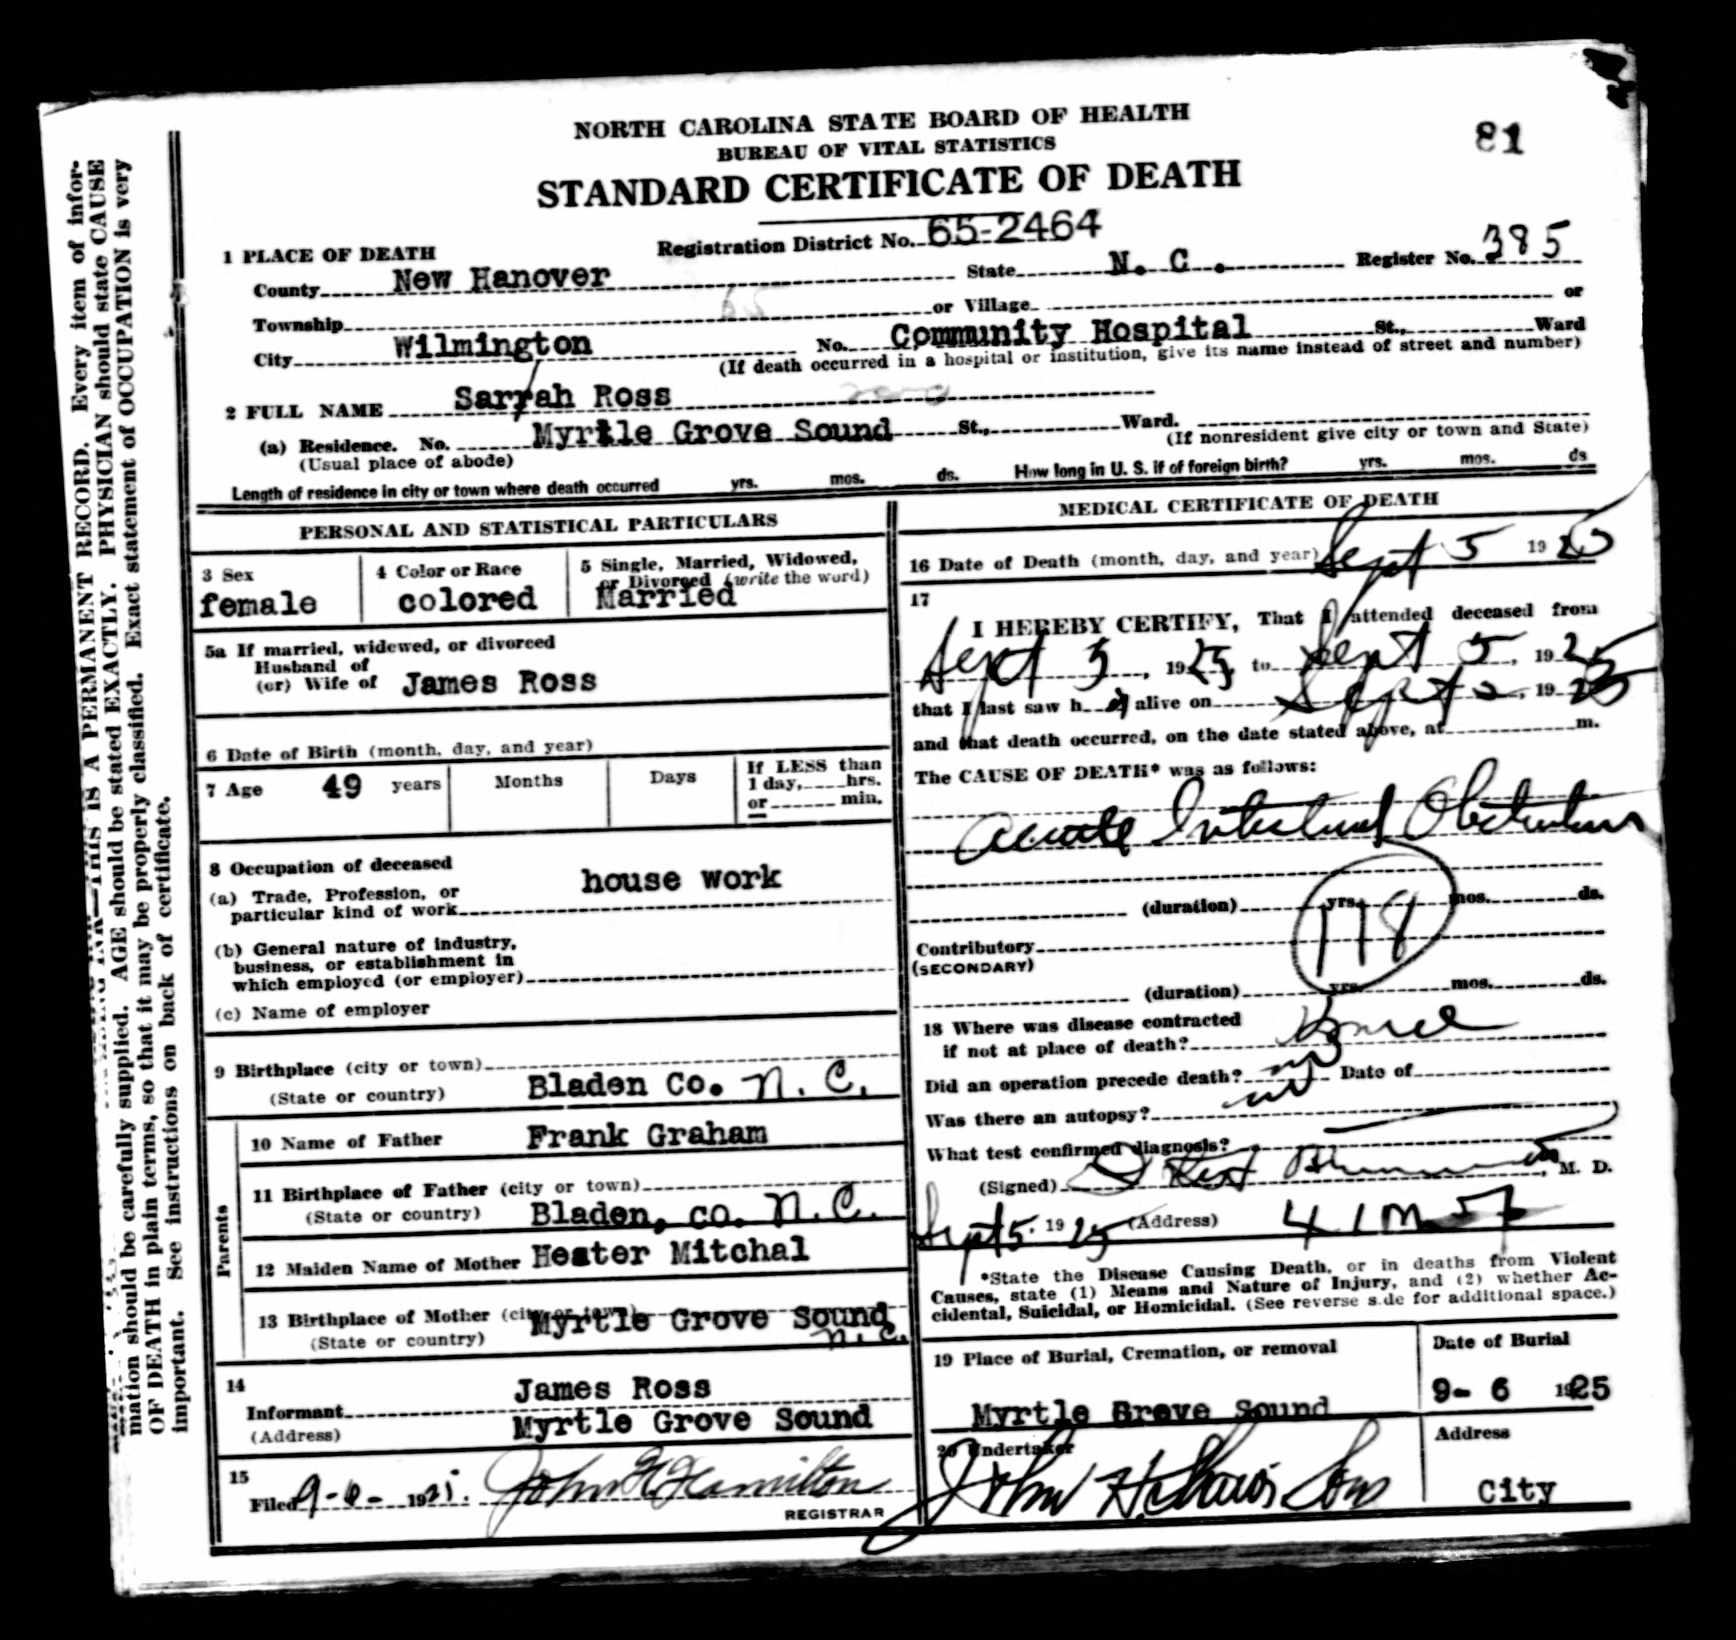 81
NORTH CAROLINA STATE BOARD OF HEALTH
BUREAU OF VITAL STATISTICS
STANDARD CERTIFICATE OF DEATH
Registration District No. 65-2464
1 PLACE OF DEATH
County New Hanover State N. C. Register No. 385
Township 65 or Village or
City Wilmington No. Community Hospital St., Ward
(If death occurred in a hospital or institution, give its name instead of street and number)
2 FULL NAME Sarrah Ross
(a) Residence. No. Myrtle Grove Sound St., Ward.
(Usual place of abode) (If nonresident give city or town and State)
Length of residence in city or town where death occurred yrs. mos. ds. How long in U. S. if of foreign birth? yrs. mos. ds
PERSONAL AND STATISTICAL PARTICULARS
3 Sex
female
4 Color or Race
colored
5 Single, Married, Widowed,
or Divorced (write the word)
Married
5a If married, widewed, or divorced
Husband of
(or) Wife of James Ross
6 Date of Birth (month, day, and year)
7 Age 49 years Months Days
If LESS than
1 day, hrs.
or min.
8 Occupation of deceased
(a) Trade, Profession, or
particular kind of work house work
(b) General nature of industry,
business, or establishment in
which employed (or employer)
(c) Name of employer
9 Birthplace (city or town)
(State or country) Bladen Co. N. C.
Parents
10 Name of Father Frank Graham
11 Birthplace of Father (city or town)
(State or country) Bladen, co. N. C.
12 Maiden Name of Mother Hester Mitchal
13 Birthplace of Mother (city or town) Myrtle Grove Sound
(State or country) N. C.
14
Informant James Ross
(Address) Myrtle Grove Sound
15
Filed 9-6- 1925. John H Hamilton
REGISTRAR
MEDICAL CERTIFICATE OF DEATH
16 Date of Death (month, day, and year) Sept 5 1925
17
I HEREBY CERTIFY, That I attended deceased from
Sept 3, 1925, to Sept 5, 1925
that I last saw h alive on Sept, 1925
and that death occurred, on the date stated above, at m.
The CAUSE OF DEATH* was as follows:
Acute Intestinal Obstruction
(duration) yrs. mos. ds.
118
Contributory
(SECONDARY)
(duration) yrs. mos. ds.
18 Where was disease contracted
if not at place of death? Home
Did an operation precede death? no Date of
Was there an autopsy? no
What test confirmed diagnosis?
(Signed) M. D.
Sept 5. 1925 (Address)
*State the Disease Causing Death, or in deaths from Violent
Causes, state (1) Means and Nature of Injury, and (2) whether Ac-
cidental, Suicidal, or Homicidal. (See reverse side for additional space.)
19 Place of Burial, Cremation, or removal
Myrtle Grove Sound
Date of Burial
9- 6 1925
20 Undertaker
John H. Shaw's Sons
Address
City
THIS IS A PERMANENT RECORD. Every item of infor-
mation should be carefully supplied. AGE should be stated EXACTLY. PHYSICIAN should state CAUSE
OF DEATH in plain terms, so that it may be properly classified. Exact statement of OCCUPATION is very
important. See instructions on back of certificate.